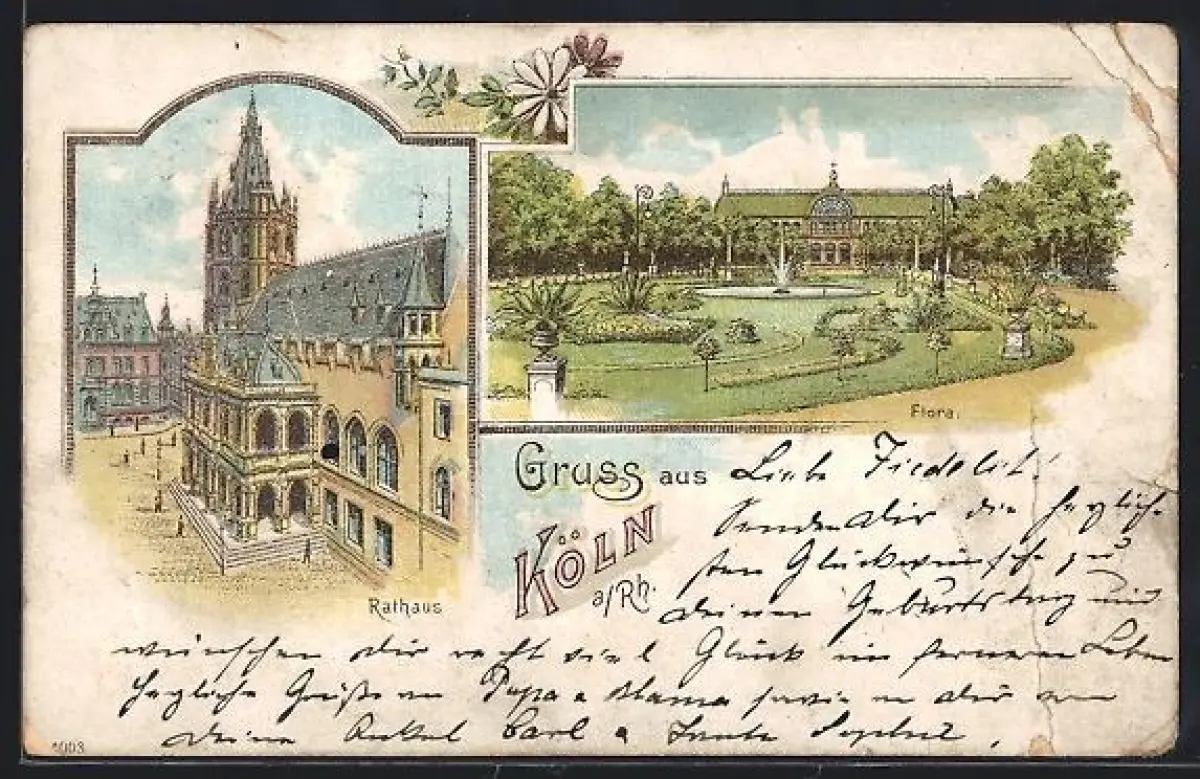 Flora.
Gruss aus
KÖLN
a/Rh.
Rathaus
Liebe
Senden Dir die herzlich-
sten Glückwünsche zu
deinem Geburtstag und
wünschen dir recht viel Glück im ferneren Leben
herzliche Grüße an Papa u Mama sowie an dich von
deine Onkel Carl u Tante
1003